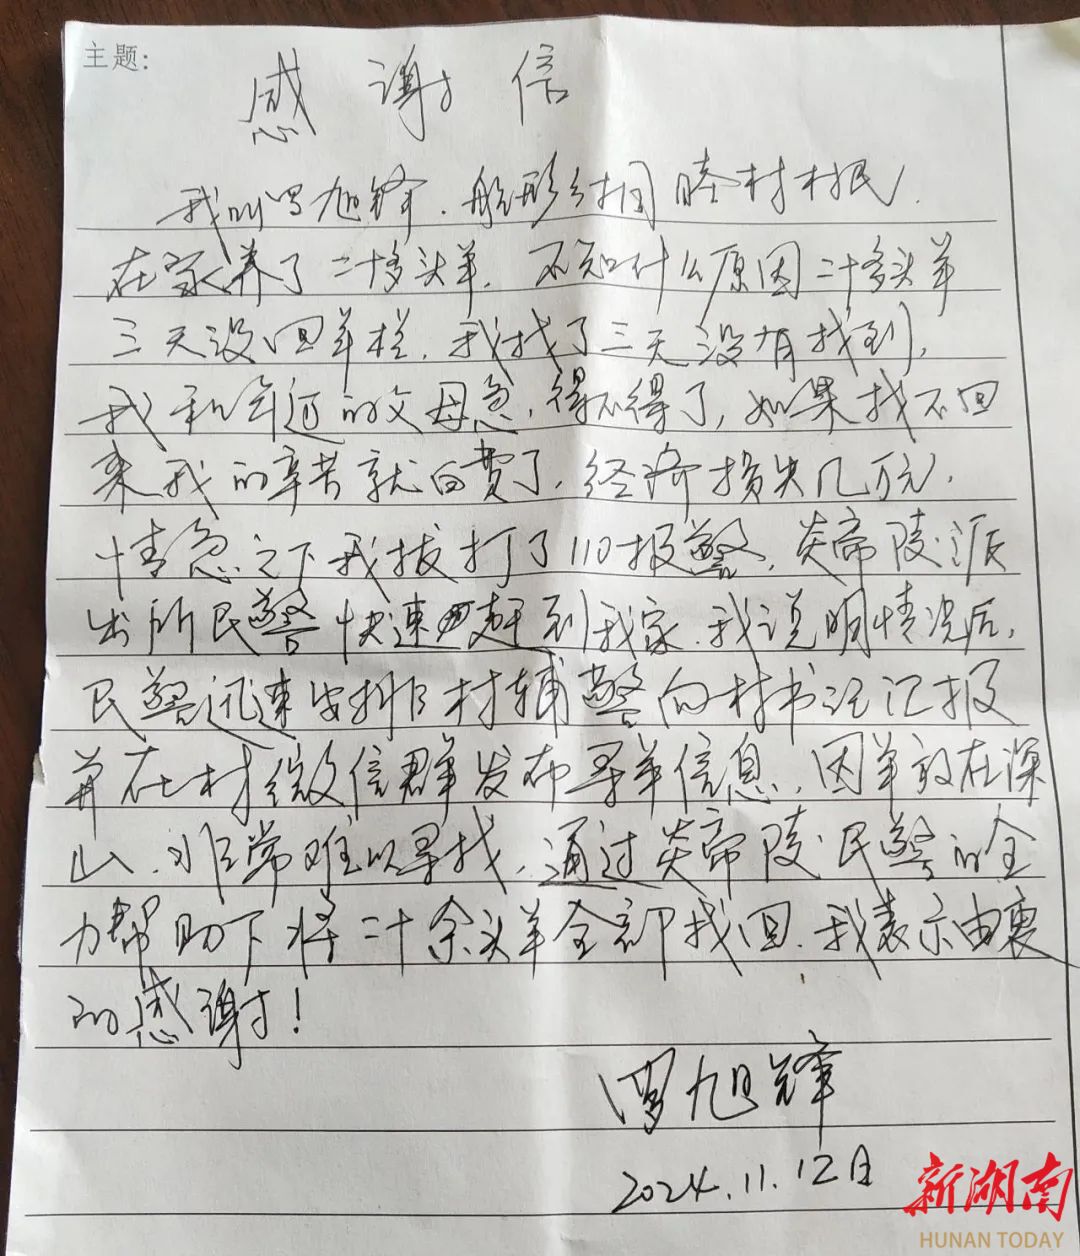 主题:
感谢信
我叫罗旭锋.船形乡相睦村村民.
在家养了二十多头羊.不知什么原因二十多头羊
三天没回羊栏.我找了三天没有找到,
我和年迈的父母急,得不得了,如果找不回
来我的辛苦就白费了.经济损失几万元.
情急之下我拔打了110报警.炎帝陵派
出所民警快速赶到我家.我说明情况后,
民警迅速安排村辅警向村书记汇报
并在村微信群发布寻羊信息.因羊放在深
山.非常难以寻找.通过炎帝陵民警的全
力帮助下将二十余头羊全部找回.我表示由衷
的感谢!
罗旭锋
2024.11.12日
新湖南
HUNAN TODAY